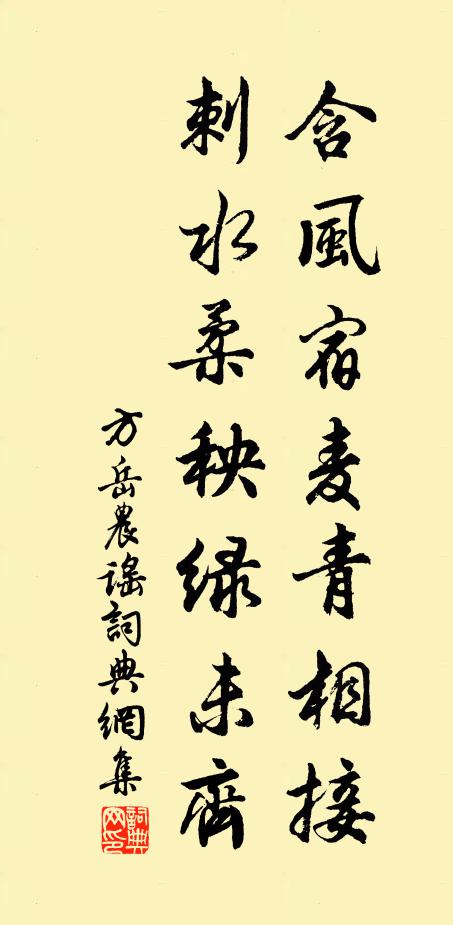 含風宿麦青相接
刺水柔秧緑未齊
方岳農謡詞典網集
詞典網印